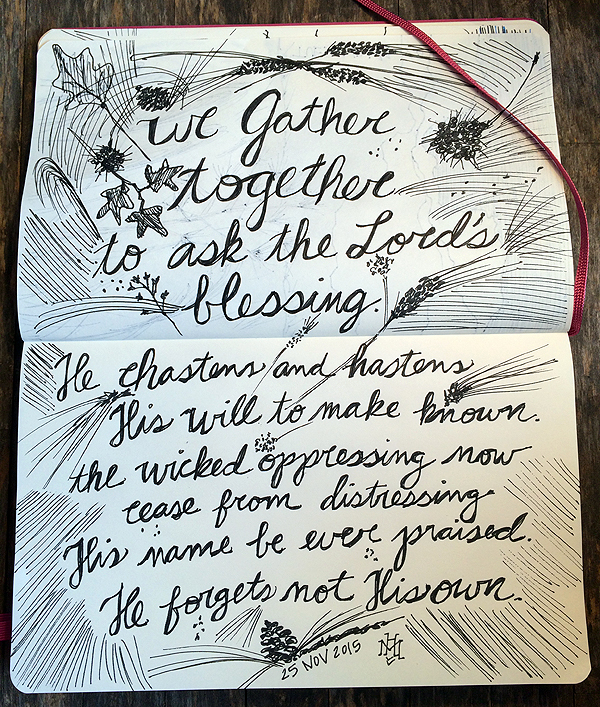 we Gather
together
to ask the Lord's
blessing.
He chastens and hastens
His will to make known.
the wicked oppressing now
cease from distressing.
His name be ever praised.
He forgets not His own.
25 NOV 2015